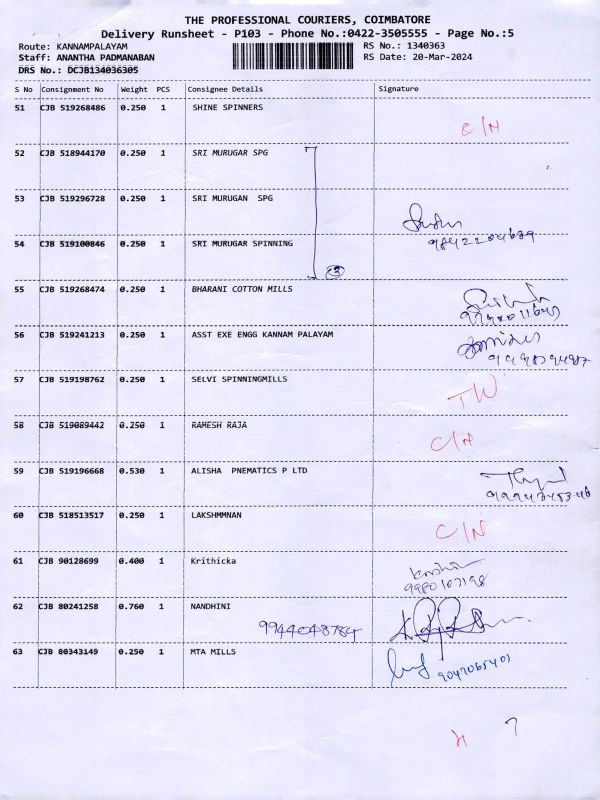 THE PROFESSIONAL COURIERS, COIMBATORE
Delivery Runsheet - P103 - Phone No.:0422-3505555 - Page No.:5
Route: KANNAMPALAYAM RS No.: 1340363
Staff: ANANTHA PADMANABAN RS Date: 20-Mar-2024
DRS No.: DCJB134036305
S No Consignment No Weight PCS Consignee Details Signature
51 CJB 519268486 0.250 1 SHINE SPINNERS
C/N
52 CJB 518944170 0.250 1 SRI MURUGAR SPG
53 CJB 519296728 0.250 1 SRI MURUGAN SPG
54 CJB 519100846 0.250 1 SRI MURUGAR SPINNING
3
55 CJB 519268474 0.250 1 BHARANI COTTON MILLS
56 CJB 519241213 0.250 1 ASST EXE ENGG KANNAM PALAYAM
57 CJB 519198762 0.250 1 SELVI SPINNINGMILLS
TW
58 CJB 519089442 0.250 1 RAMESH RAJA
C/N
59 CJB 519196668 0.530 1 ALISHA PNEMATICS P LTD
60 CJB 518513517 0.250 1 LAKSHMMNAN
C/N
61 CJB 90128699 0.400 1 Krithicka
9980107198
62 CJB 80241258 0.760 1 NANDHINI
9944048784
63 CJB 80343149 0.250 1 MTA MILLS
9047065401
7